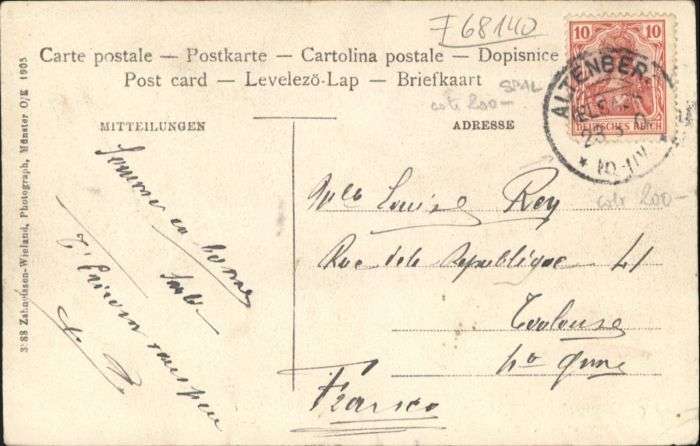 F 68140
Carte postale — Postkarte — Cartolina postale — Dopisnice
Post card — Levelező-Lap — Briefkaart
SPAL
cote 200-
MITTEILUNGEN
ADRESSE
10 10
DEUTSCHES REICH
ALTENBERG
(ELSASS)
23
10-11V
cote 200-
3r 88 Zahn-Jessen-Wieland, Photograph, Münster O/E 1905
Sommes en bonne
santé
Mlle Louise Rey
Rue de la Republique 41
Toulouse
Hte Gne
France